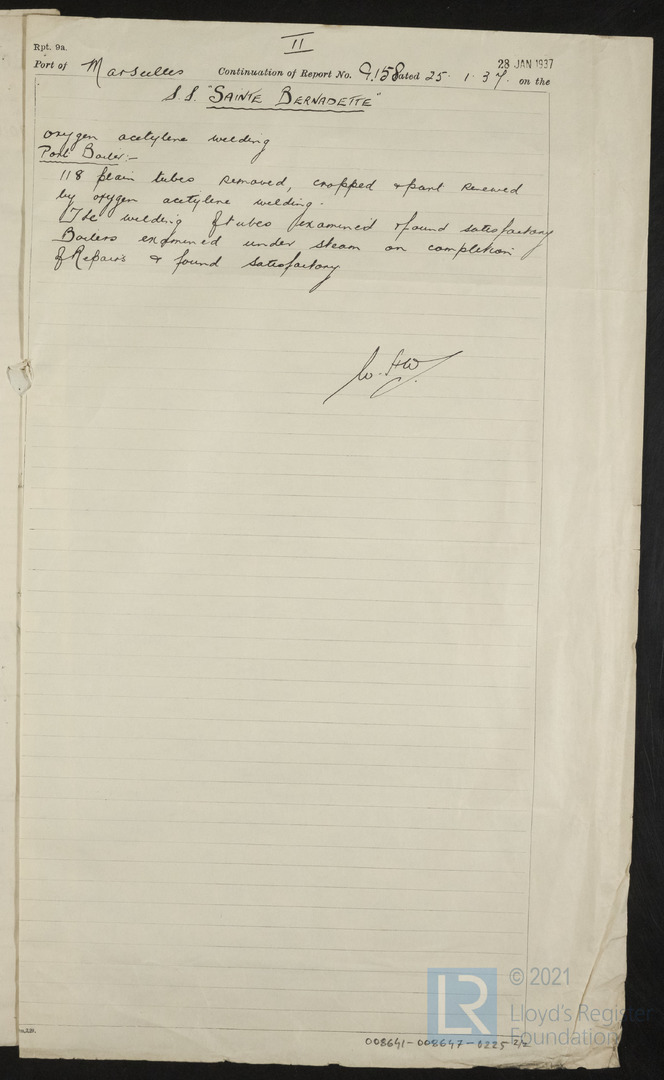 II
Rpt. 9a.
28 JAN 1937
Port of Marseilles Continuation of Report No. 9158 dated 25. 1. 37. on the
S.S. "SAINTE BERNADETTE"
oxygen acetylene welding
Port Boiler:-
118 plain tubes removed, cropped & part renewed
by oxygen acetylene welding.
The welding of tubes examined & found satisfactory
Boilers examined under steam on completion
of Repairs & found satisfactory
W. HW
© 2021
LR
Lloyd's Register
Foundation
008641-008647-0225 2/2